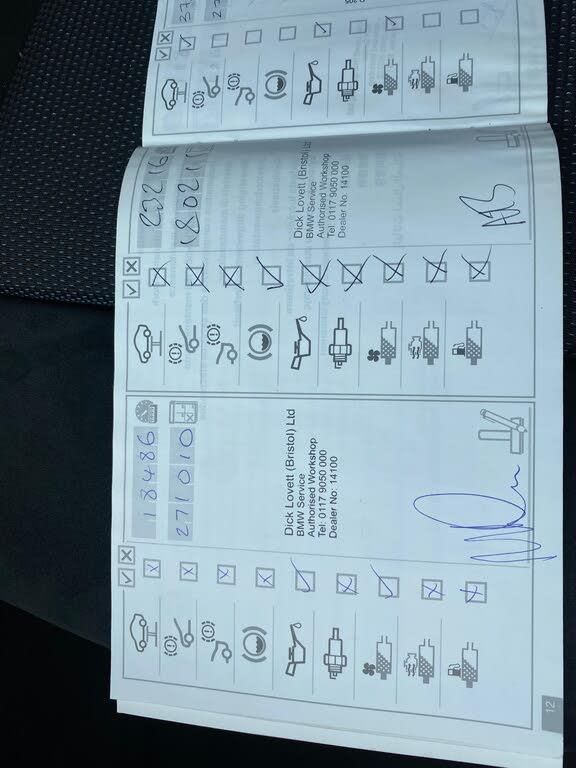 18486
271010
Dick Lovett (Bristol) Ltd
BMW Service
Authorised Workshop
Tel: 0117 9050 000
Dealer No: 14100
23216
Dick Lovett (Bristol) Ltd
BMW Service
Authorised Workshop
Tel: 0117 9050 000
Dealer No: 14100
12